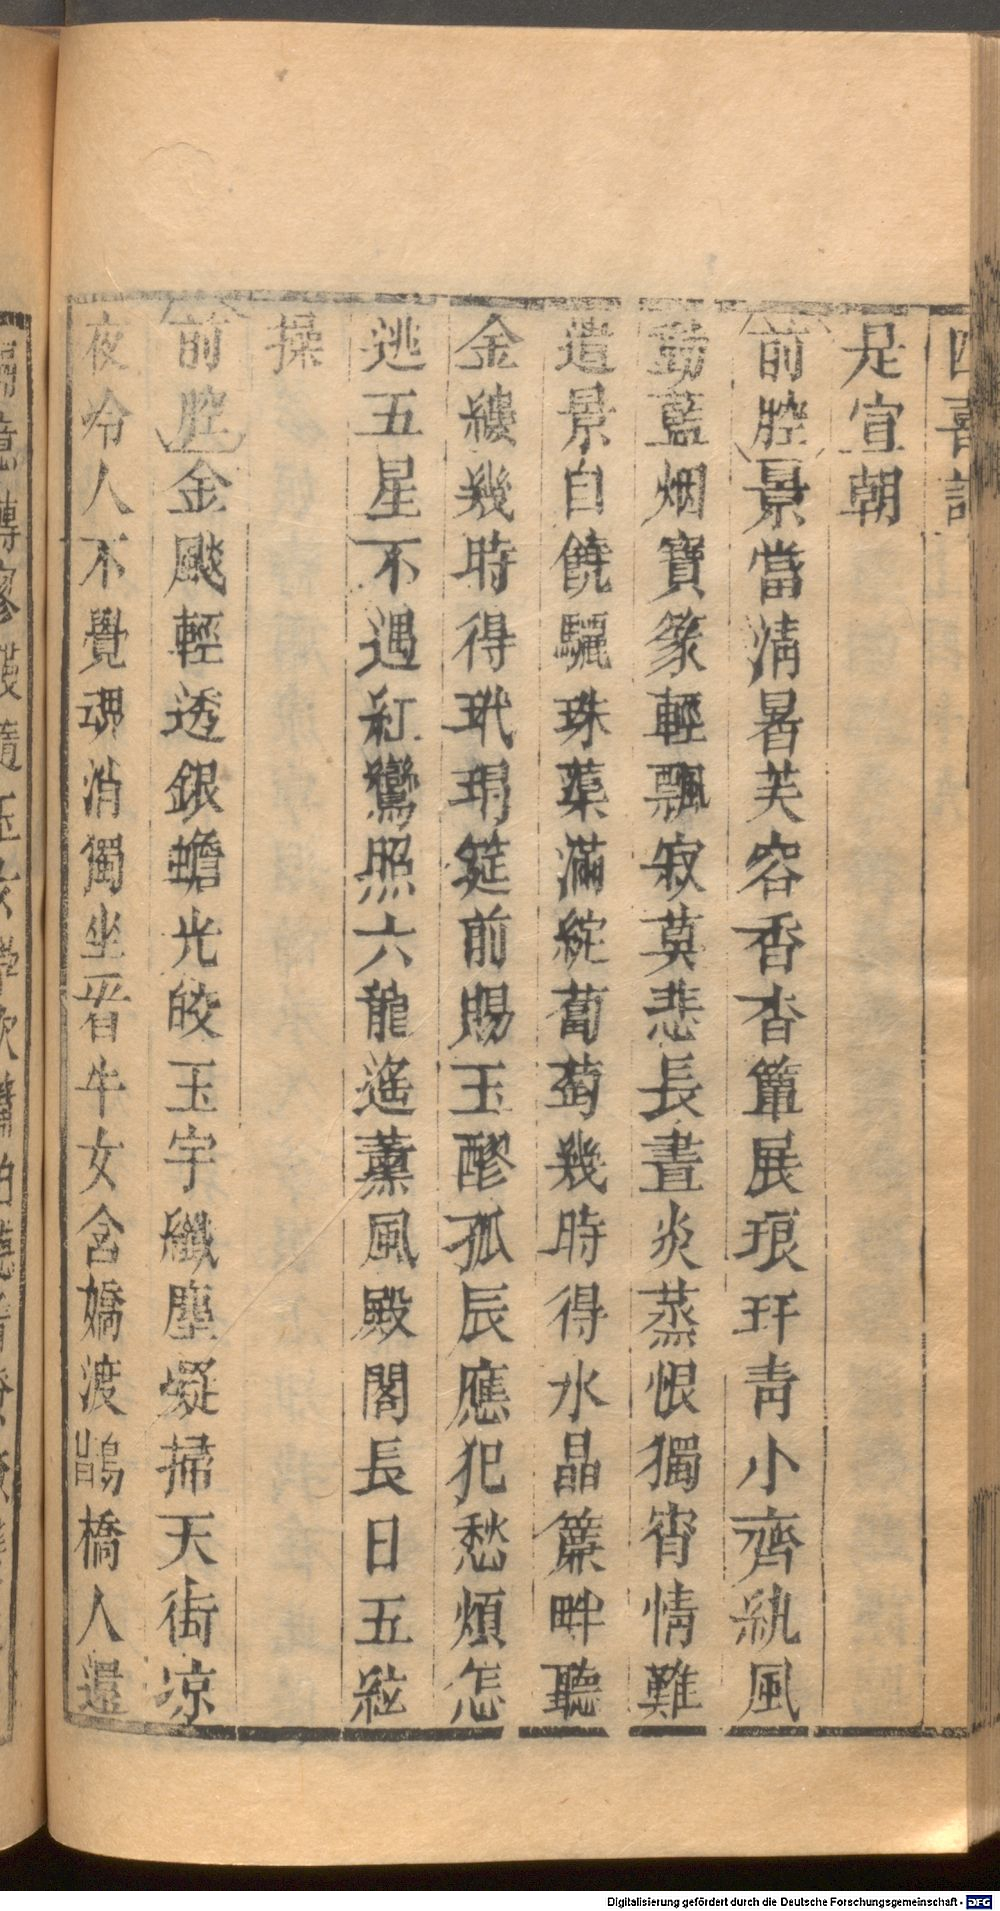 四喜記
是宣朝
前腔景當清暑芙容香沓簟展琅玕青小齊紈風
動藍烟寶篆輕飄寂莫悲長晝炎蒸恨獨宵情難
遣景自饒驪珠蕖滿綻蔔萄幾時得水晶簾畔聽
金縷幾時得玳瑁筵前賜玉醪孤辰應犯愁煩怎
逃五星不遇紅鸞照六龍遙薰風殿閣長日五絃
操
前腔金颷輕透銀蟾光皎玉宇纖塵凝掃天街凉
夜冷人不覺魂消獨坐看牛女含嬌渡鵲橋人還
Digitalisierung gefördert durch die Deutsche Forschungsgemeinschaft - DFG